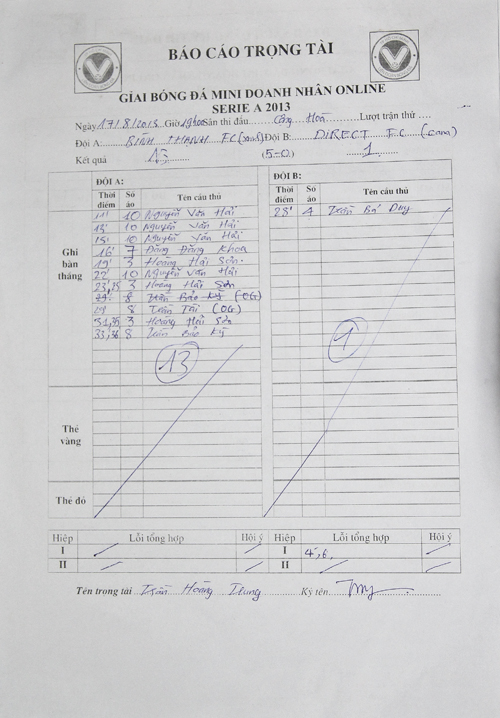 BÁO CÁO TRỌNG TÀI
GIẢI BÓNG ĐÁ MINI DOANH NHÂN ONLINE
SERIE A 2013
Ngày 17/8/2013 Giờ 19h00 Sân thi đấu Cộng Hoà Lượt trận thứ
Đội A: BÌNH THẠNH F.C (xanh) Đội B: DIRECT F.C (cam)
Kết quả 13 (5-0) 1
ĐỘI A: ĐỘI B:
Thời điểm Số áo Tên cầu thủ Thời điểm Số áo Tên cầu thủ
Ghi bàn thắng
11' 10 Nguyễn Văn Hải 28' 4 Trần Bá Duy
13' 10 Nguyễn Văn Hải
15' 10 Nguyễn Văn Hải
16' 7 Đặng Đăng Khoa
19' 3 Hoàng Hải Sơn
22' 10 Nguyễn Văn Hải
23,25 3 Hoàng Hải Sơn
29' 8 Trần Bảo Kỳ (OG)
29 8 Trần Tài (OG)
31,35 3 Hoàng Hải Sơn
33,36 8 Trần Bảo Kỳ
13 1
Thẻ vàng
Thẻ đỏ
Hiệp Lỗi tổng hợp Hội ý Hiệp Lỗi tổng hợp Hội ý
I I 4,6,
II II
Tên trọng tài Trần Hoàng Dung Ký tên